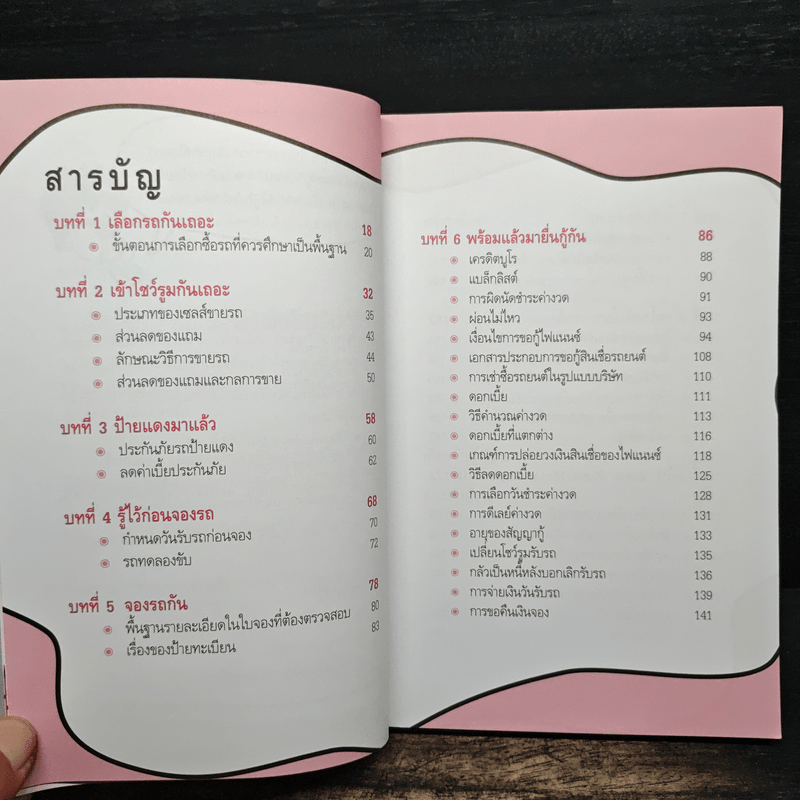 สารบัญ
บทที่ 1 เลือกรถกันเถอะ 18
ขั้นตอนการเลือกซื้อรถที่ควรศึกษาเป็นพื้นฐาน 20
บทที่ 2 เข้าโชว์รูมกันเถอะ 32
ประเภทของเซลส์ขายรถ 35
ส่วนลดของแถม 43
ลักษณะวิธีการขายรถ 44
ส่วนลดของแถมและกลการขาย 50
บทที่ 3 ป้ายแดงมาแล้ว 58
ประกันภัยรถป้ายแดง 60
ลดค่าเบี้ยประกันภัย 62
บทที่ 4 รู้ไว้ก่อนจองรถ 68
กำหนดวันรับรถก่อนจอง 70
รถทดลองขับ 72
บทที่ 5 จองรถกัน 78
พื้นฐานรายละเอียดในใบจองที่ต้องตรวจสอบ 80
เรื่องของป้ายทะเบียน 83
บทที่ 6 พร้อมแล้วมายื่นกู้กัน 86
เครดิตบูโร 88
แบล็กลิสต์ 90
การผิดนัดชำระค่างวด 91
ผ่อนไม่ไหว 93
เงื่อนไขการขอกู้ไฟแนนซ์ 94
เอกสารประกอบการขอกู้สินเชื่อรถยนต์ 108
การเช่าซื้อรถยนต์ในรูปแบบบริษัท 110
ดอกเบี้ย 111
วิธีคำนวณค่างวด 113
ดอกเบี้ยที่แตกต่าง 116
เกณฑ์การปล่อยวงเงินสินเชื่อของไฟแนนซ์ 118
วิธีลดดอกเบี้ย 125
การเลือกวันชำระค่างวด 128
การดีเลย์ค่างวด 131
อายุของสัญญากู้ 133
เปลี่ยนโชว์รูมรับรถ 135
กลัวเป็นหนี้หลังบอกเลิกรับรถ 136
การจ่ายเงินวันรับรถ 139
การขอคืนเงินจอง 141